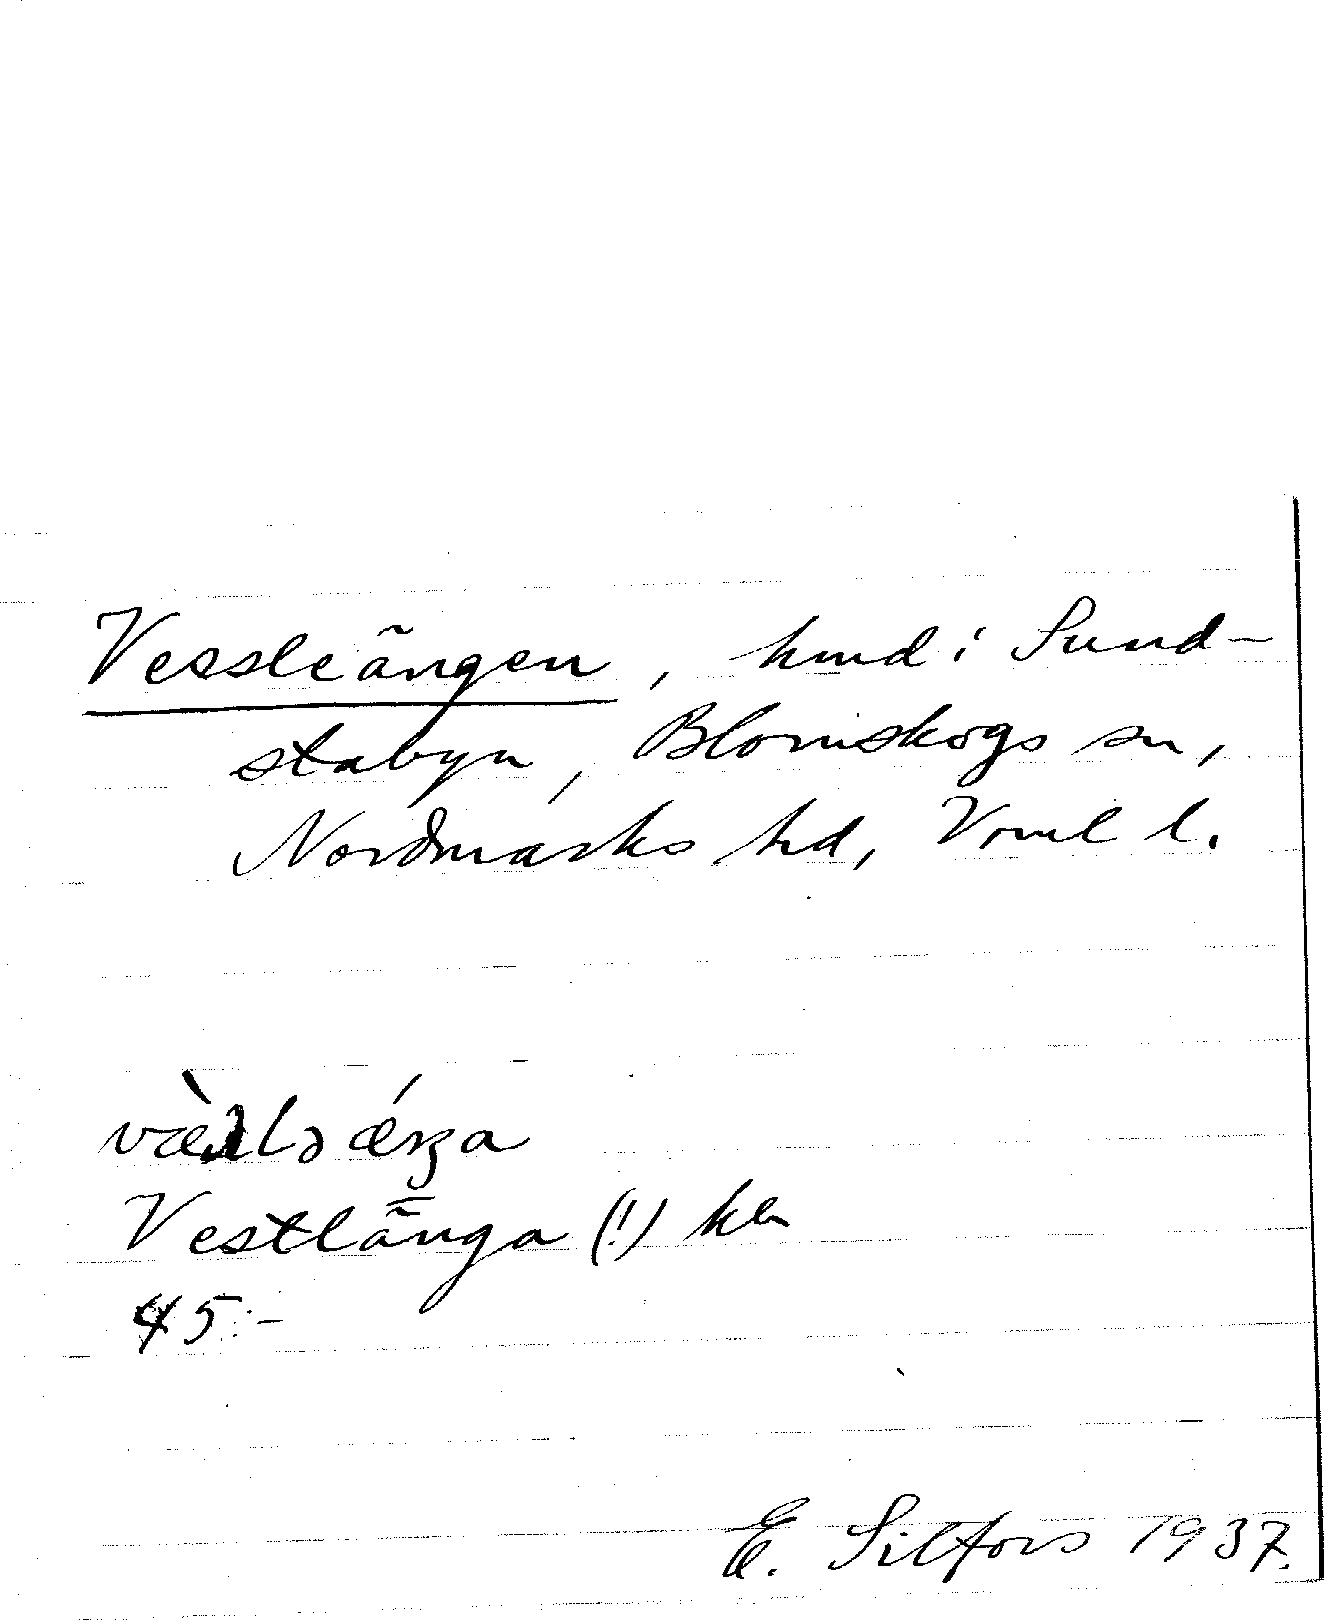 Vessleängen, hmd i Sund-
stabyn, Blomskogs sn,
Nordmarks hd, Vrml l.
Vestlänga (!) kla
45:-
E. Silfors 1937.